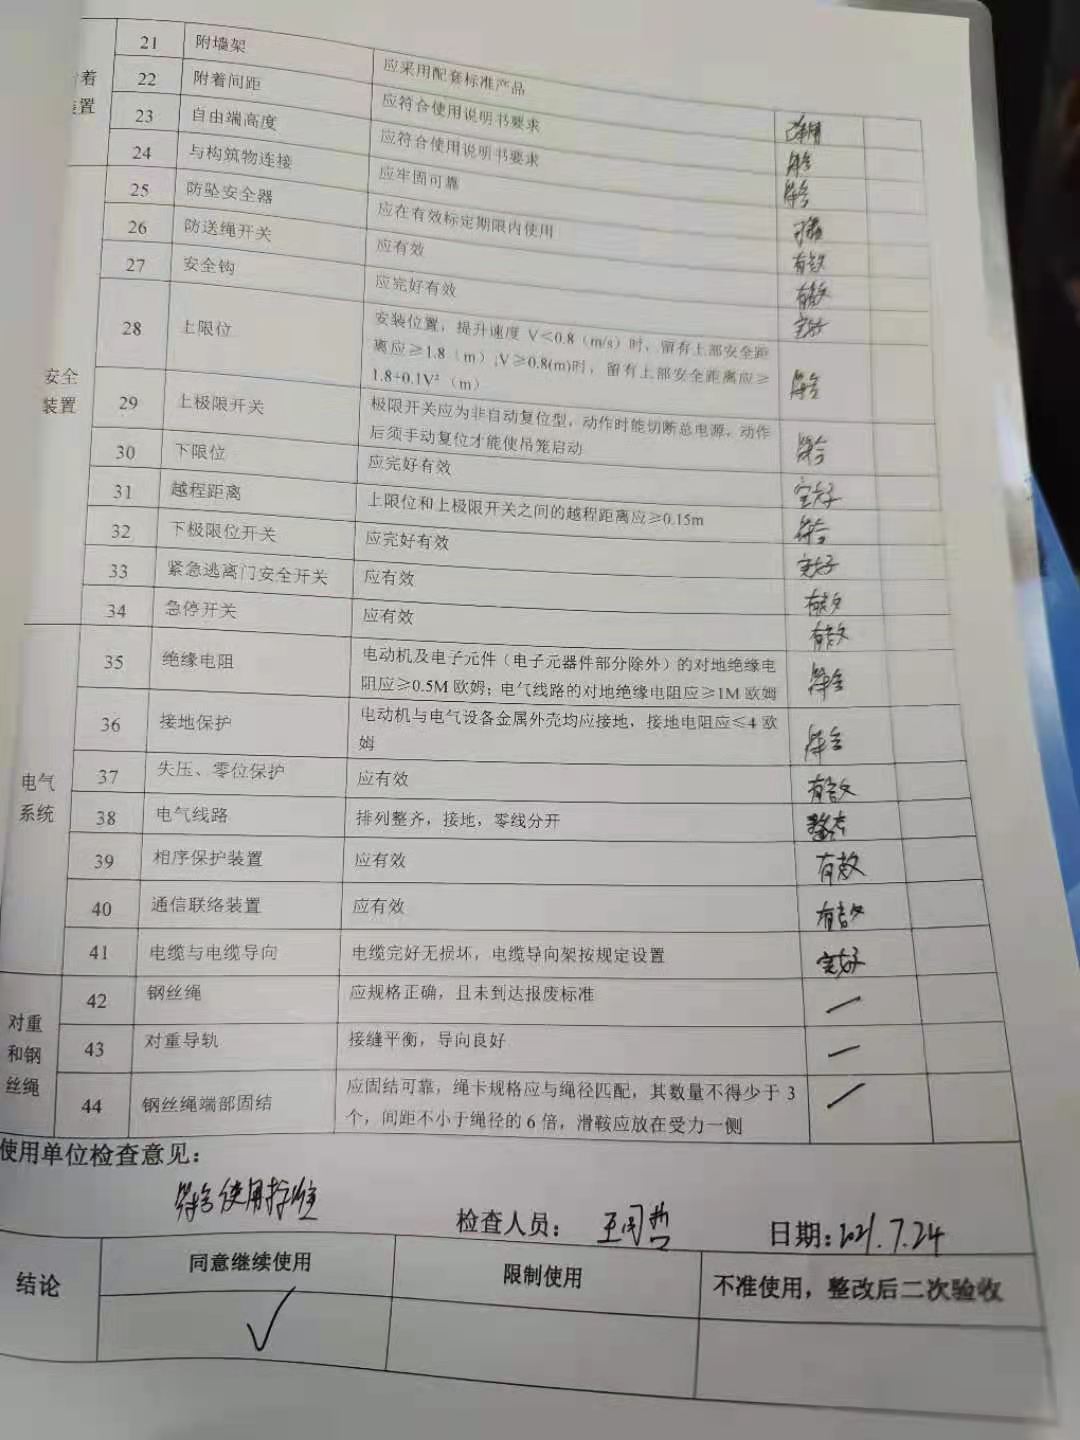 着
置
21 附墙架 应采用配套标准产品
22 附着间距 应符合使用说明书要求 符合
23 自由端高度 应符合使用说明书要求 符合
24 与构筑物连接 应牢固可靠 可靠
安全
装置
25 防坠安全器 应在有效标定期限内使用 有效
26 防送绳开关 应有效 有效
27 安全钩 应完好有效 完好
28 上限位 安装位置,提升速度 V＜0.8（m/s）时，留有上部安全距
离应≥1.8（m）;V≥0.8(m)时，留有上部安全距离应≥
1.8+0.1V²（m） 符合
29 上极限开关 极限开关应为非自动复位型，动作时能切断总电源，动作
后须手动复位才能使吊笼启动 符合
30 下限位 应完好有效 完好
31 越程距离 上限位和上极限开关之间的越程距离应≥0.15m 符合
32 下极限位开关 应完好有效 完好
33 紧急逃离门安全开关 应有效 有效
34 急停开关 应有效 有效
电气
系统
35 绝缘电阻 电动机及电子元件（电子元器件部分除外）的对地绝缘电
阻应≥0.5M 欧姆；电气线路的对地绝缘电阻应≥1M 欧姆 符合
36 接地保护 电动机与电气设备金属外壳均应接地，接地电阻应≤4 欧
姆 符合
37 失压、零位保护 应有效 有效
38 电气线路 排列整齐，接地，零线分开 整齐
39 相序保护装置 应有效 有效
40 通信联络装置 应有效 有效
41 电缆与电缆导向 电缆完好无损坏，电缆导向架按规定设置 完好
对重
和钢
丝绳
42 钢丝绳 应规格正确，且未到达报废标准 —
43 对重导轨 接缝平衡，导向良好 —
44 钢丝绳端部固结 应固结可靠，绳卡规格应与绳径匹配，其数量不得少于 3
个，间距不小于绳径的 6 倍，滑鞍应放在受力一侧 —
使用单位检查意见：
符合使用标准
检查人员： 王闯哲 日期：2021.7.24
结论 同意继续使用 限制使用 不准使用，整改后二次验收
√